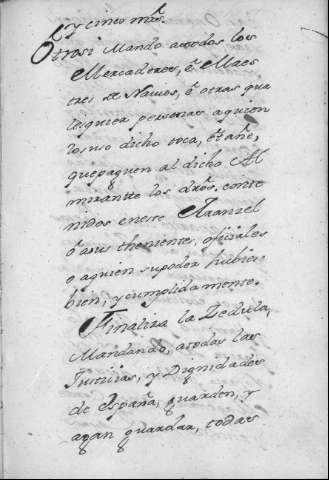 y cinco mrs.
Otrosi Mando atodos los
Mercaderes, ê Maes
tres de Navios, ê otras qua
lesquier personas aquien
losuso dicho toca, ê tañe,
quepaguen al dicho Al
mirantte los dros. conte
nidos eneste Aranzel
ô asus theniente, ofiziales
o aquien supoder hubie
bien, y cumplida mente.
Finaliza la Zedula,
Mandando, atodas las
Justizias, y Dignidades
de España, guarden, y
agan guardar, todas